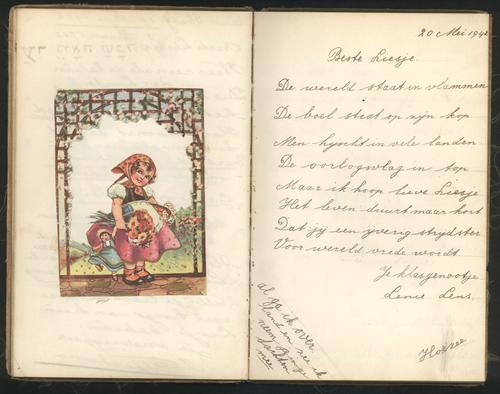 20 Mei 1942
Beste Liesje
De wereld staat in vlammen
De boel staat op zijn kop
Men hijscht in vele landen
De oorlogsvlag in top
Maar ik hoop lieve Liesje
Het leven duurt maar kort
Dat jij een ijverig strijdster
Voor wereld vrede wordt
Je klasgenootje
Lenie Lens
al ga ik over
land en zee ik
neem
mee
Hoezee